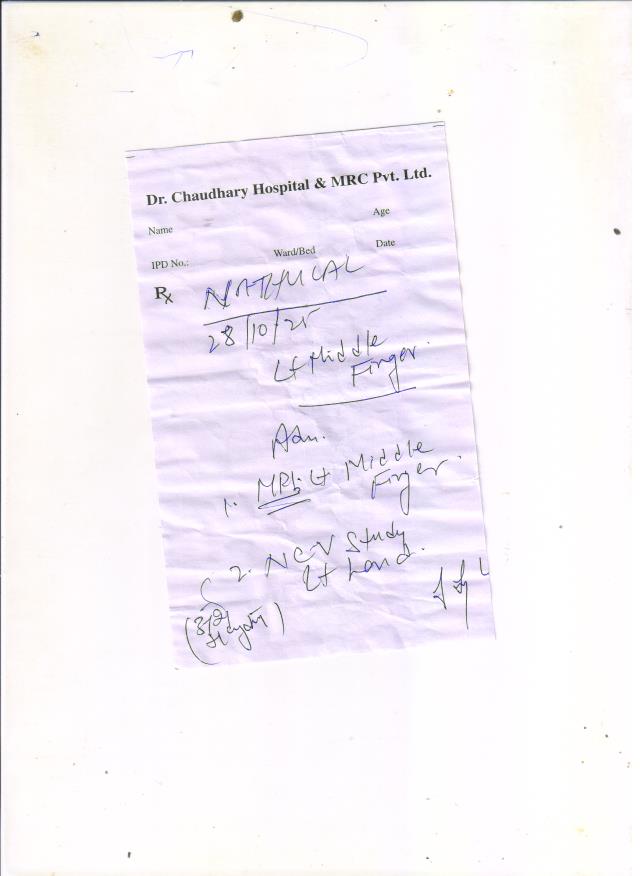 Dr. Chaudhary Hospital & MRC Pvt. Ltd.
Name Age
IPD No.: Ward/Bed Date
Rx NATHULAL
28/10/25
Lt Middle
Finger.
Adv.
1. MRI: Lt Middle
Finger.
2. NCV Study
Lt hand.